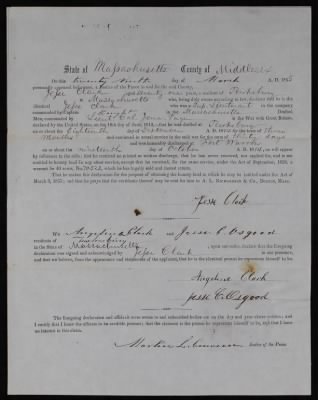 State of Massachusetts County of Middlesex
On this twenty ninth day of March A. D. 1855
personally appeared before me, a Justice of the Peace in and for the said County,
Jesse Clark aged seventy one years resident of Tewksbury
in Massachusetts who, being duly sworn according to law, declares that he is the
identical Jesse Clark who was a
commanded by Captain of Massachusetts
commanded by Lieut Col. in the War with Great Britain,
declared by the United States, on the 18th day of June, 1812; that he
on or about the Eighteenth day of A. D. 18 for the term of three
Months and continued in actual service in said war for the term of Thirty days
and was honorably discharged at Fort Warren
on the nineteenth day of October A. D. 18 , as will appear
by reference to the rolls; that he received no printed or written discharge, that he has never received, nor applied for, and is not
entitled to bounty land for any other service, except that he received, for the same service, under the Act of September, 1850, a
warrant for 40 acres, No. which he has legally sold and cannot return.
That he makes this declaration for the purpose of obtaining the bounty land to which he may be entitled under the Act of
March 3, 1855; and that he prays that the certificate thereof may be sent to
Jesse Clark
We Angeline Clark and Jesse C. Osgood
residents of Tewksbury
in the State of Massachusetts upon our oaths, declare that the foregoing
declaration was signed and acknowledged by Jesse Clark in our presence,
and that we believe, from the appearance and statements of the applicant, that he is the identical person he represents himself to be.
Angeline Clark
Jesse C. Osgood
The foregoing declaration and affidavit were sworn to and subscribed before me on the day and year above written; and
I certify that I know the affiants to be credible persons; that the claimant is the person he represents himself to be, and that I have
no interest in this claim.
Justice of the Peace